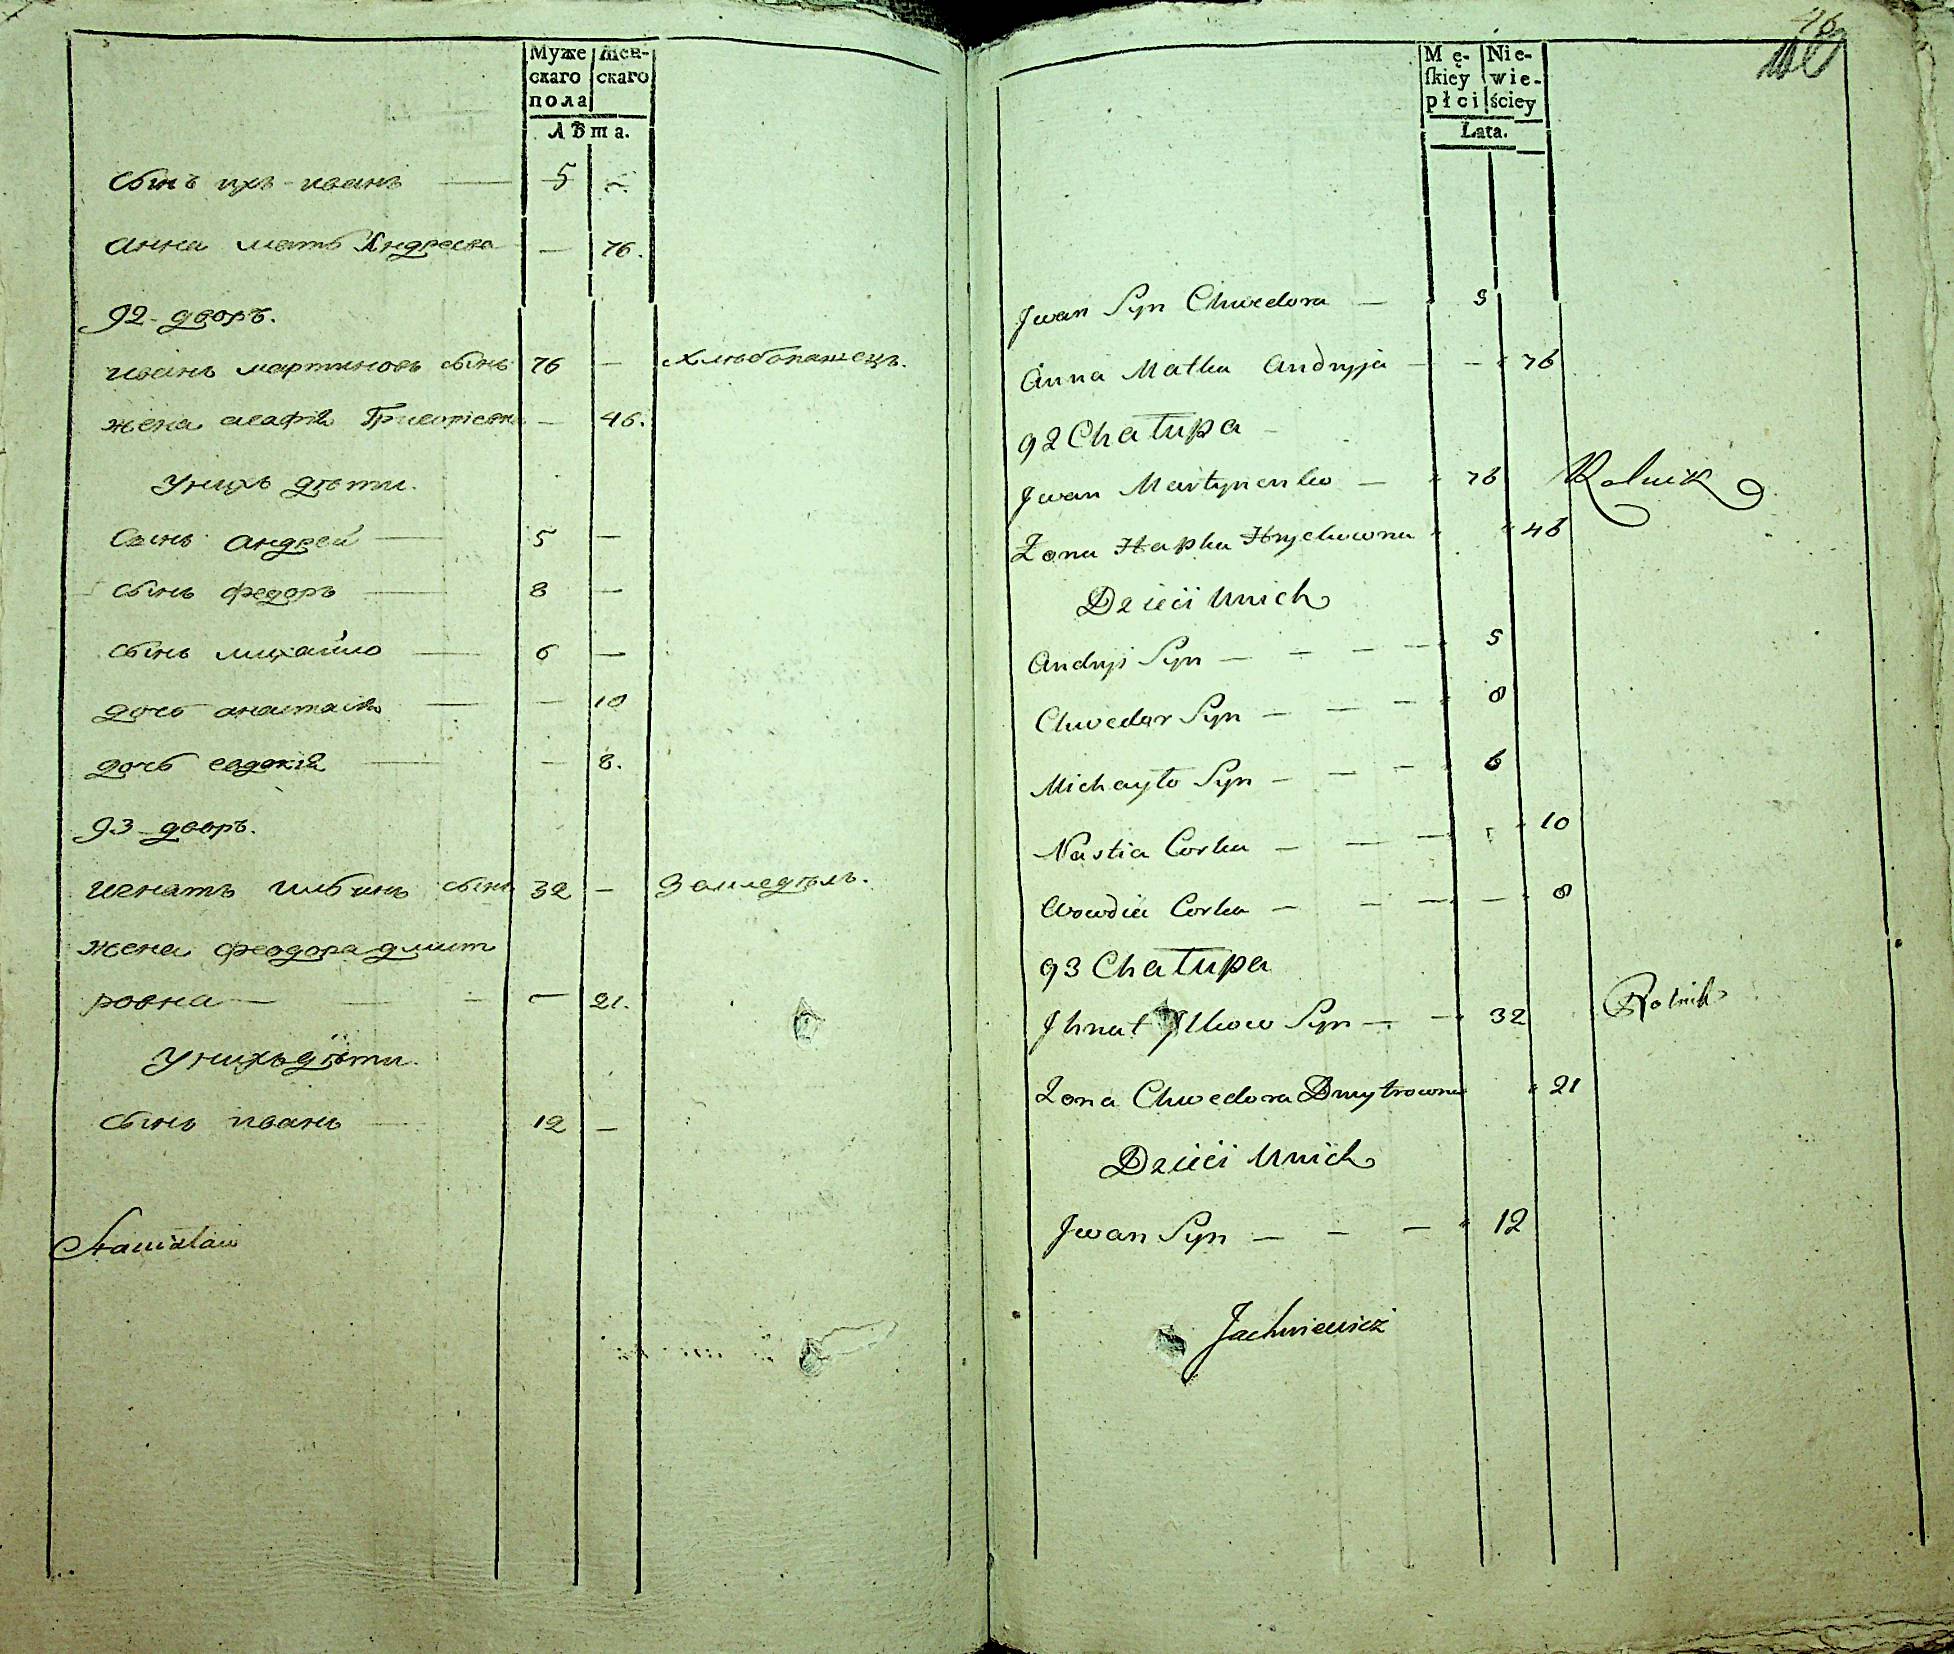 Муже Жен-
скаго скаго
пола
Лѣта.
сынъ ихъ иванъ — 5 —
анна мать Андреева — 76.
92 дворъ.
иванъ мартиновъ сынъ 76 — хлѣбопашецъ.
жена агафія Григориева — 46.
У нихъ дѣти.
Сынъ андрей — 5 —
сынъ федоръ — 8 —
сынъ михайло — 6 —
дочь анастасія — — 10
дочь евдокія — — 8.
93 дворъ.
игнатъ ильинъ сынъ 32 — Земледѣль.
жена феодора дмит
ровна — — 21.
У нихъ дѣти.
сынъ иванъ — 12 —
Stanisław
46
Mę- Nie-
ſkiey wie-
płci ściey
Lata.
Jwan Syn Chwedora — 5
Anna Matka Andryja — — 76
92 Chałupa —
Jwan Martynenko — 76 Rolnik
Żona Hapka Hrychowna 46
Dzieci Unich
Andryi Syn — — — — 5
Chwedor Syn — — — 8
Michayło Syn — — — 6
Nastia Corka — — — 10
Owodia Corka — — — — 8
93 Chałupa
Jhnat Jlkow Syn — — 32 Rolnik
Żona Chwedora Dmytrowna 21
Dzieci Unich
Jwan Syn — — — 12
Jachniewicz